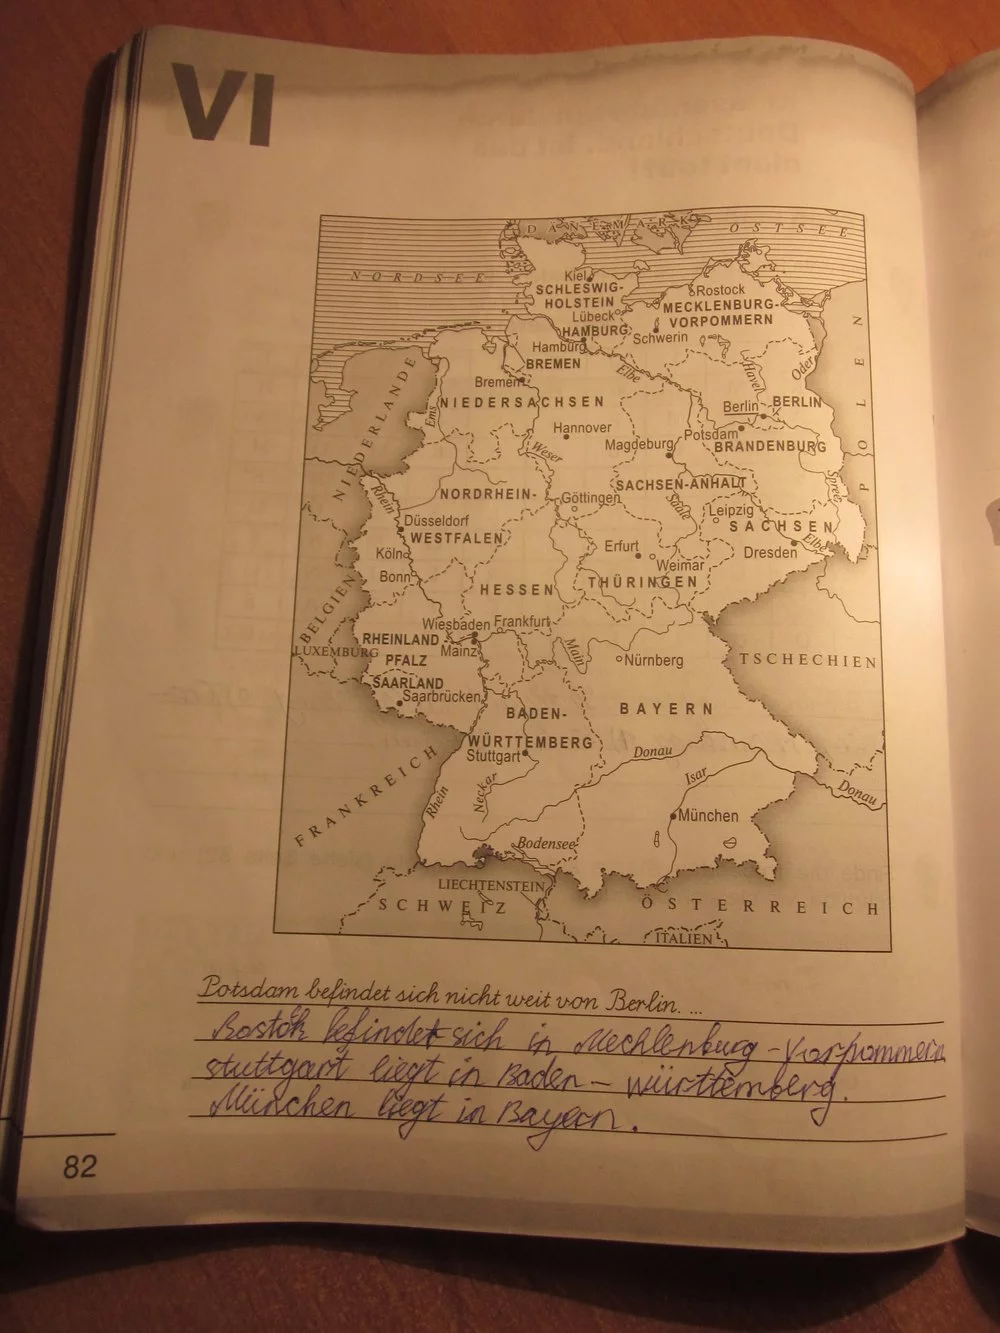 VI
DÄNEMARK
OSTSEE
NORDSEE
Kiel
SCHLESWIG-
HOLSTEIN
Rostock
MECKLENBURG-
VORPOMMERN
Lübeck
HAMBURG
Schwerin
Hamburg
BREMEN
Elbe
Havel
Oder
POLEN
NIEDERLANDE
Bremen
Ems
NIEDERSACHSEN
Berlin
BERLIN
Hannover
Potsdam
Magdeburg
BRANDENBURG
Weser
Rhein
NORDRHEIN-
SACHSEN-ANHALT
Spree
Göttingen
Saale
Leipzig
SACHSEN
Düsseldorf
WESTFALEN
Elbe
Köln
Erfurt
Dresden
Weimar
Bonn
HESSEN
THÜRINGEN
BELGIEN
Wiesbaden
Frankfurt
RHEINLAND
Mainz
Main
LUXEMBURG
PFALZ
Nürnberg
TSCHECHIEN
SAARLAND
Saarbrücken
BADEN-
BAYERN
WÜRTTEMBERG
Stuttgart
Donau
FRANKREICH
Rhein
Neckar
Isar
Donau
München
Bodensee
LIECHTENSTEIN
SCHWEIZ
ÖSTERREICH
ITALIEN
Potsdam befindet sich nicht weit von Berlin. ...
Rostok befindet sich in Mechlenburg - Vorpommern
stuttgart liegt in Baden - württemberg.
München liegt in Bayern.
82